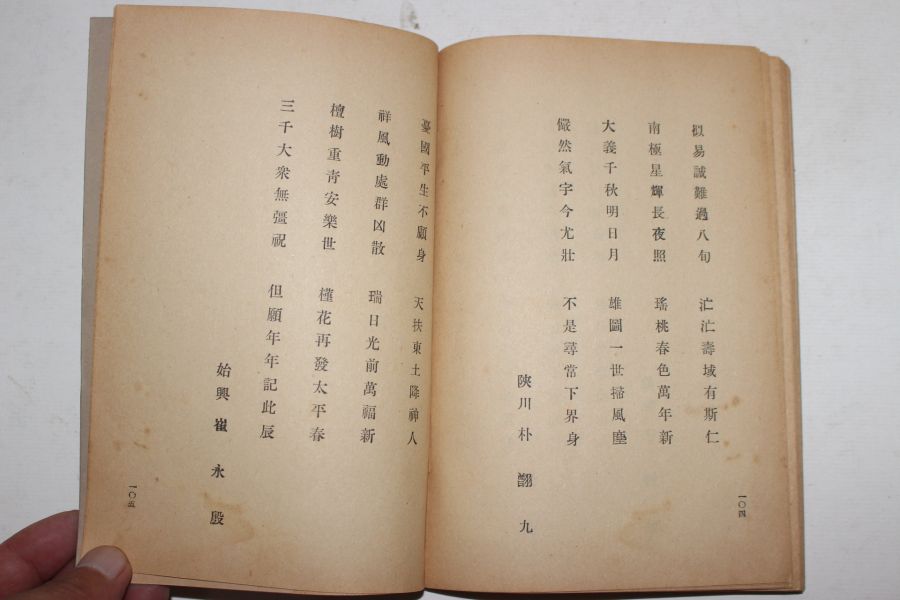 似易誠難過八旬 㳷㳷壽域有斯仁
南極星輝長夜照 瑤桃春色萬年新
大義千秋明日月 雄圖一世掃風塵
儼然氣宇今尤壯 不是尋常下界身
陜川 朴 九
一〇四
憂國平生不顧身 天扶東土降神人
祥風動處群凶散 瑞日光前萬福新
檀樹重靑安樂世 槿花再發太平春
三千大衆無彊祝 但願年年記此辰
始興 崔 永 殷
一〇五